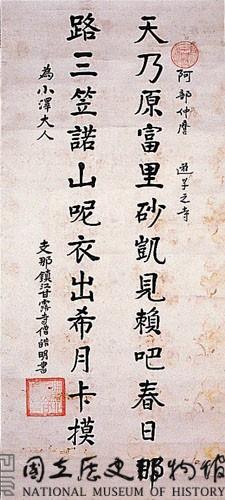 阿部仲麿 遊学之寺
天乃原富里砂凱見賴吧春日那
路三笠諾山呢衣出希月卡摸
為小澤大人
支那鎮江甘露寺僧皓明書
國立歷史博物館
NATIONAL MUSEUM OF HISTORY